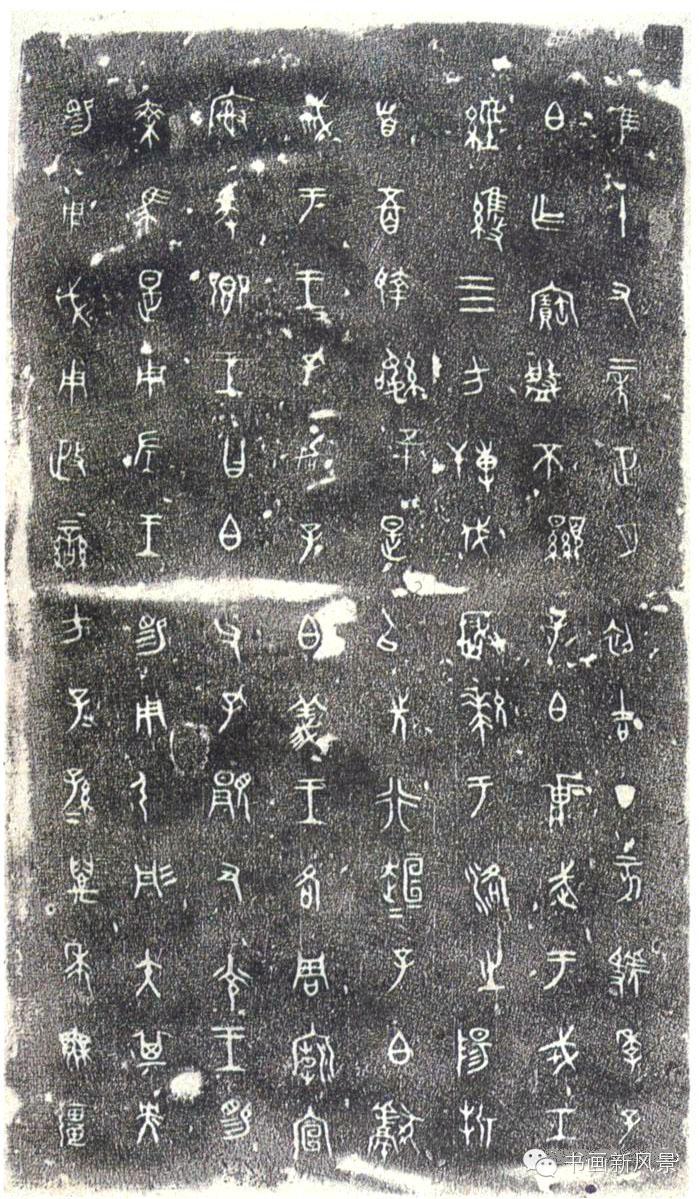 隹十又二年正月初吉丁亥虢季子
白乍寶盤不顯子白壯武于戎工
經維四方搏伐玁狁于洛之陽折
首五百執訊五十是以先行桓桓子白獻
馘于王王孔加子白義王各周廟宣
榭爰卿王曰白父孔顯又光王賜
乘馬是用左王賜用弓彤矢其央
賜用戉用政蠻方子子孫孫萬年無疆
书画新风景